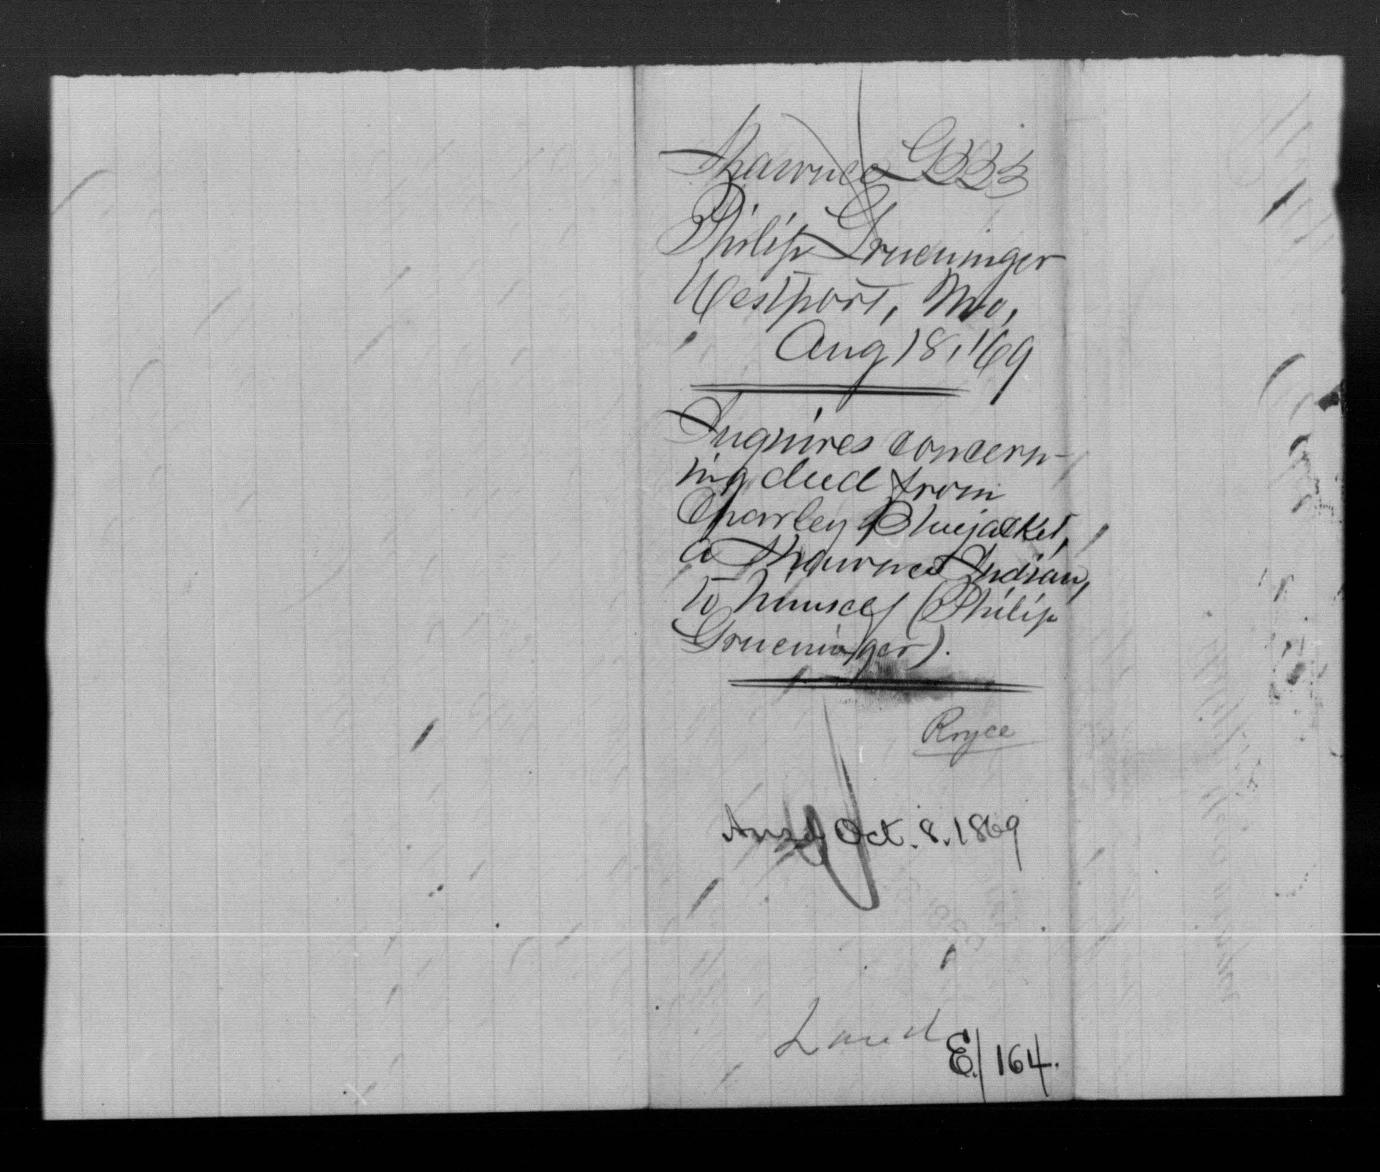 Shawnee G333
Philip Grueninger
Westport, Mo,
Aug 18, '69
Inquires concern-
ing deed from
Charley Bluejacket,
a Shawnee Indian,
to himself (Philip
Grueninger).
Royce
Ansd Oct. 8. 1869
Land
E/164.